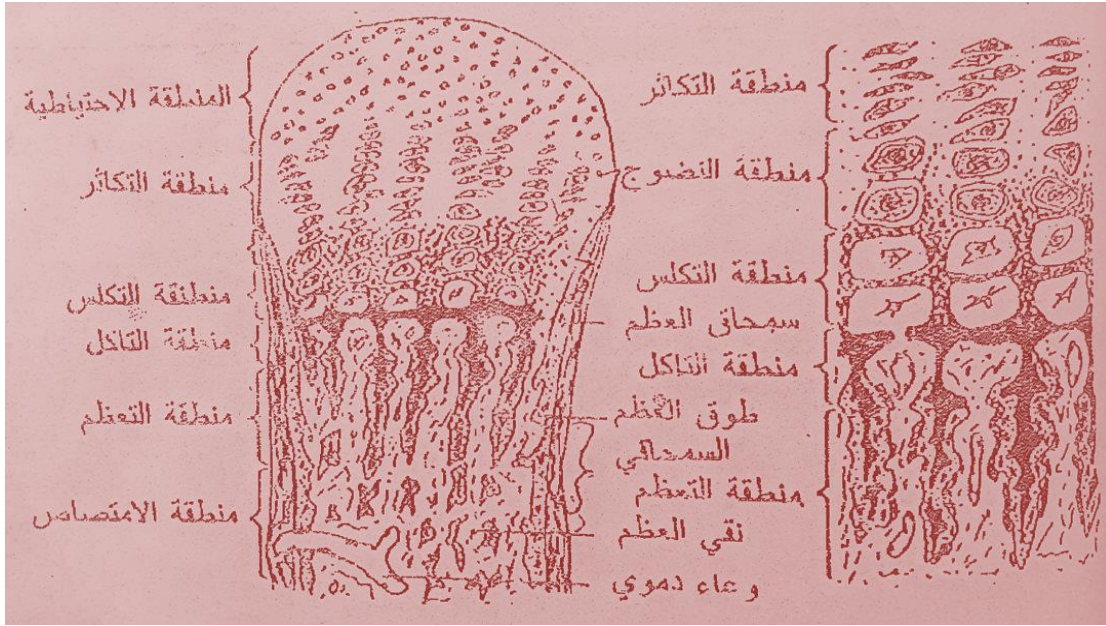 المنطقة الاحتياطية
منطقة التكاثر
منطقة التكلس
منطقة التاكل
منطقة التعظم
منطقة الامتصاص
منطقة التكاثر
منطقة النضوج
منطقة التكلس
سمحاق العظم
منطقة التاكل
طوق العظم
السمحاقي
منطقة التعظم
نقي العظم
وعاء دموي